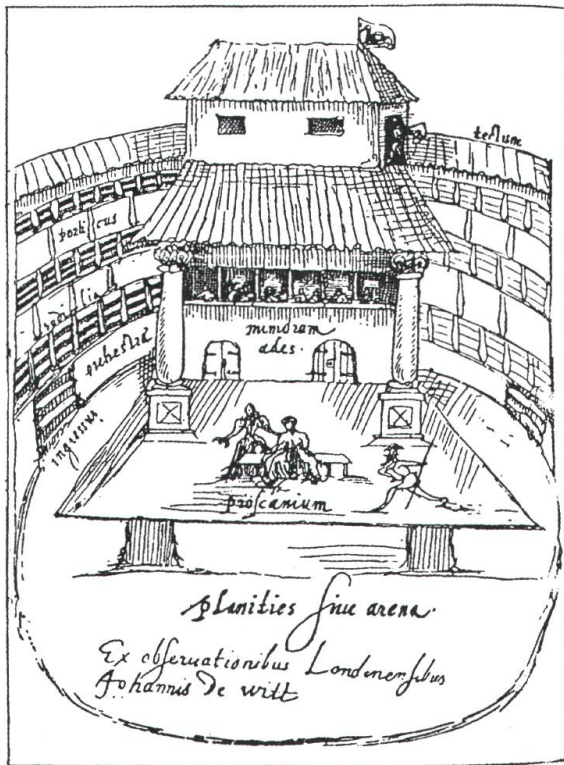 tectum
porticus
sedilia
orchestra
ingressus
mimorum
ades.
proscænium
planities siue arena.
Ex obseruationibus Londinensibus
Johannis De witt